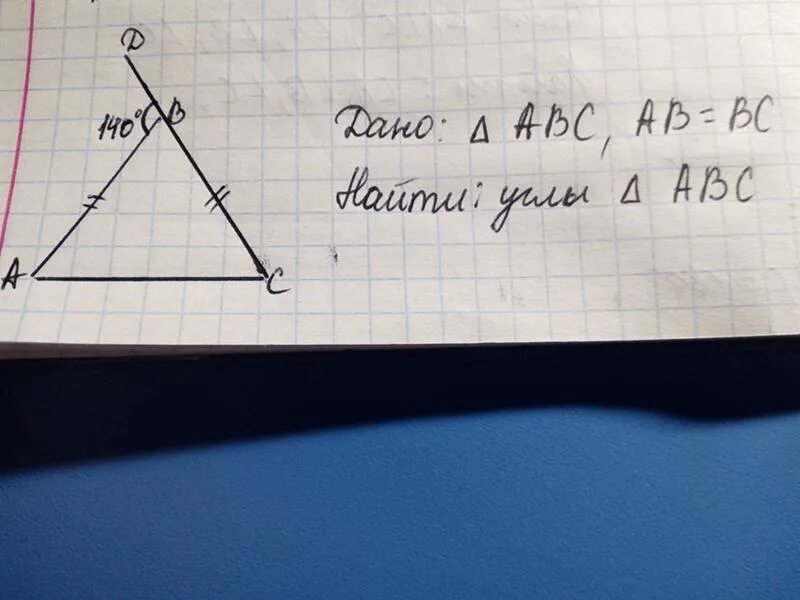 D
140° B
Дано: Δ ABC, AB = BC
Найти: углы Δ ABC
A
C